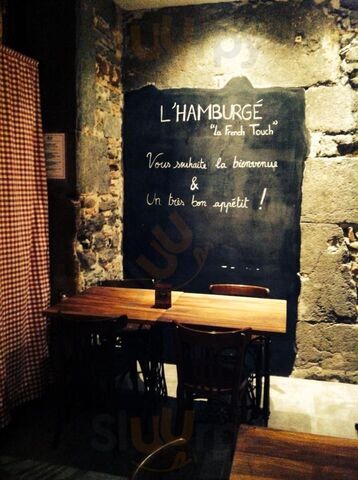 L'HAMBURGÉ
"La French Touch"
Vous souhaite la bienvenue
&
Un très bon appétit !